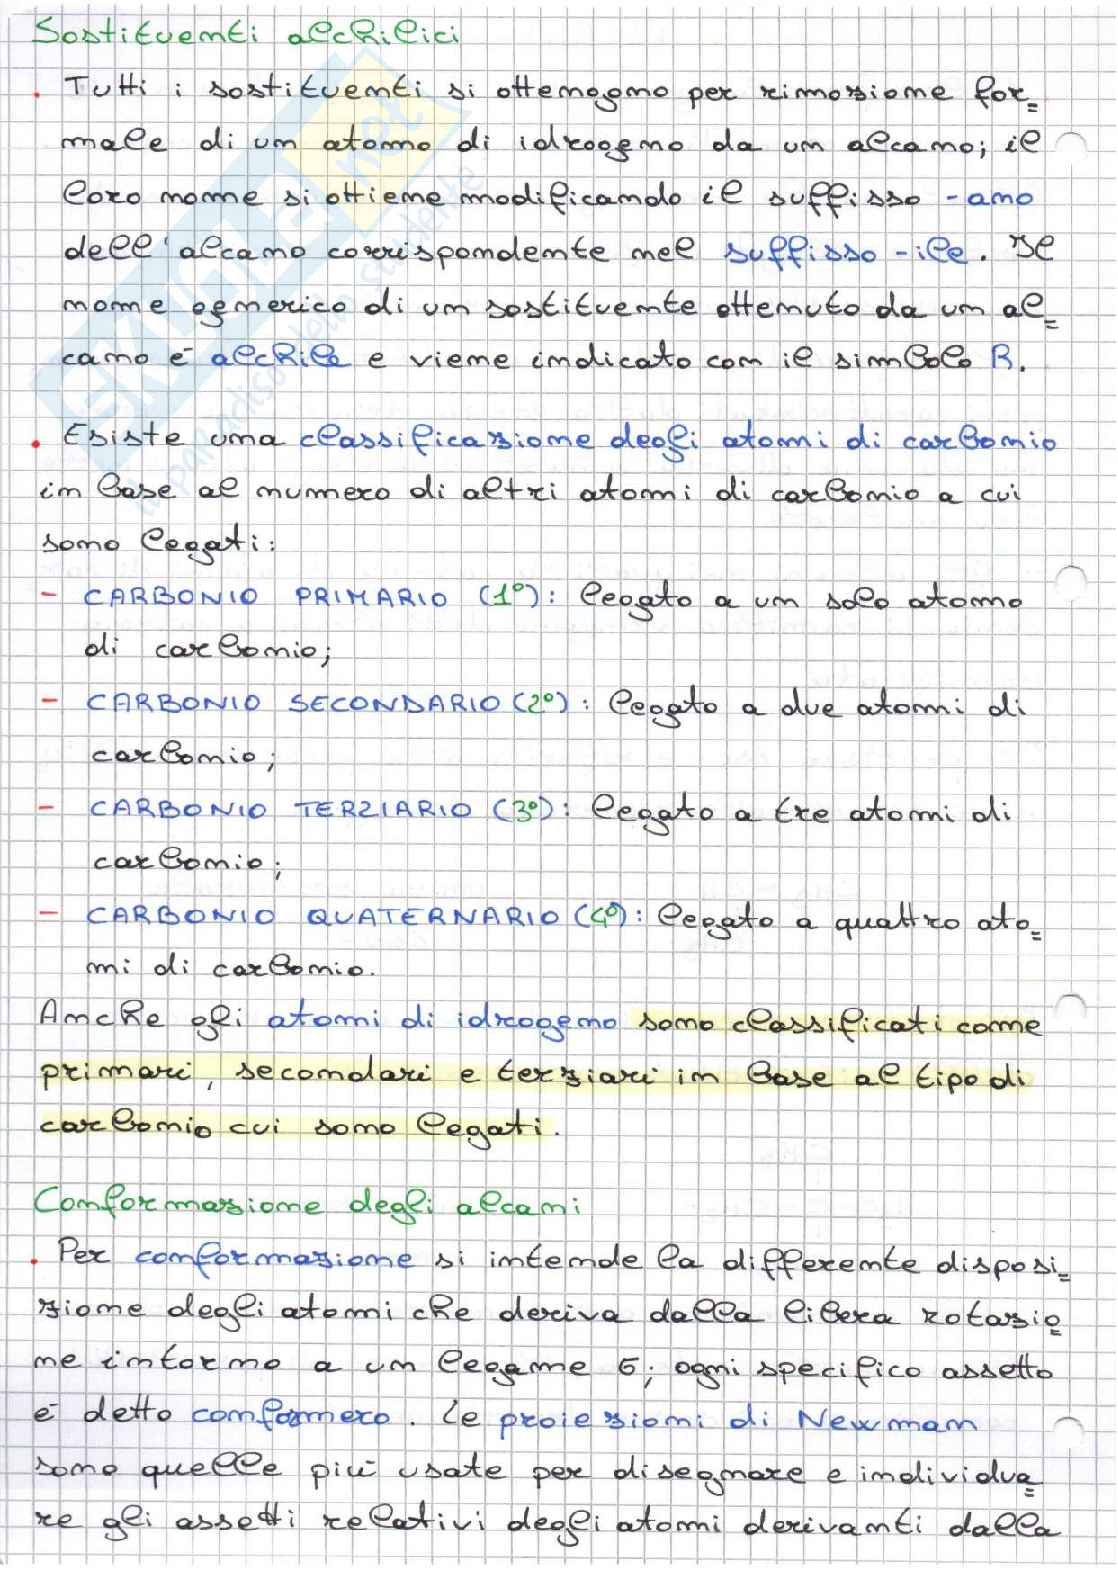 Sostituenti alchilici
. Tutti i sostituenti si ottengono per rimozione for=
male di un atomo di idrogeno da un alcano; il
loro nome si ottiene modificando il suffisso -ano
dell'alcano corrispondente nel suffisso -ile. Il
nome generico di un sostituente ottenuto da un al=
cano è alchile e viene indicato con il simbolo R.
. Esiste una classificazione degli atomi di carbonio
in base al numero di altri atomi di carbonio a cui
sono legati:
- CARBONIO PRIMARIO (1°): legato a un solo atomo
di carbonio;
- CARBONIO SECONDARIO (2°): legato a due atomi di
carbonio;
- CARBONIO TERZIARIO (3°): legato a tre atomi di
carbonio;
- CARBONIO QUATERNARIO (4°): legato a quattro ato=
mi di carbonio.
Anche gli atomi di idrogeno sono classificati come
primari, secondari e terziari in base al tipo di
carbonio cui sono legati.
Conformazione degli alcani
. Per conformazione si intende la differente disposi=
zione degli atomi che deriva dalla libera rotazio
ne intorno a un legame σ; ogni specifico assetto
è detto conformero. Le proiezioni di Newman
sono quelle più usate per disegnare e individua
re gli assetti relativi degli atomi derivanti dalla